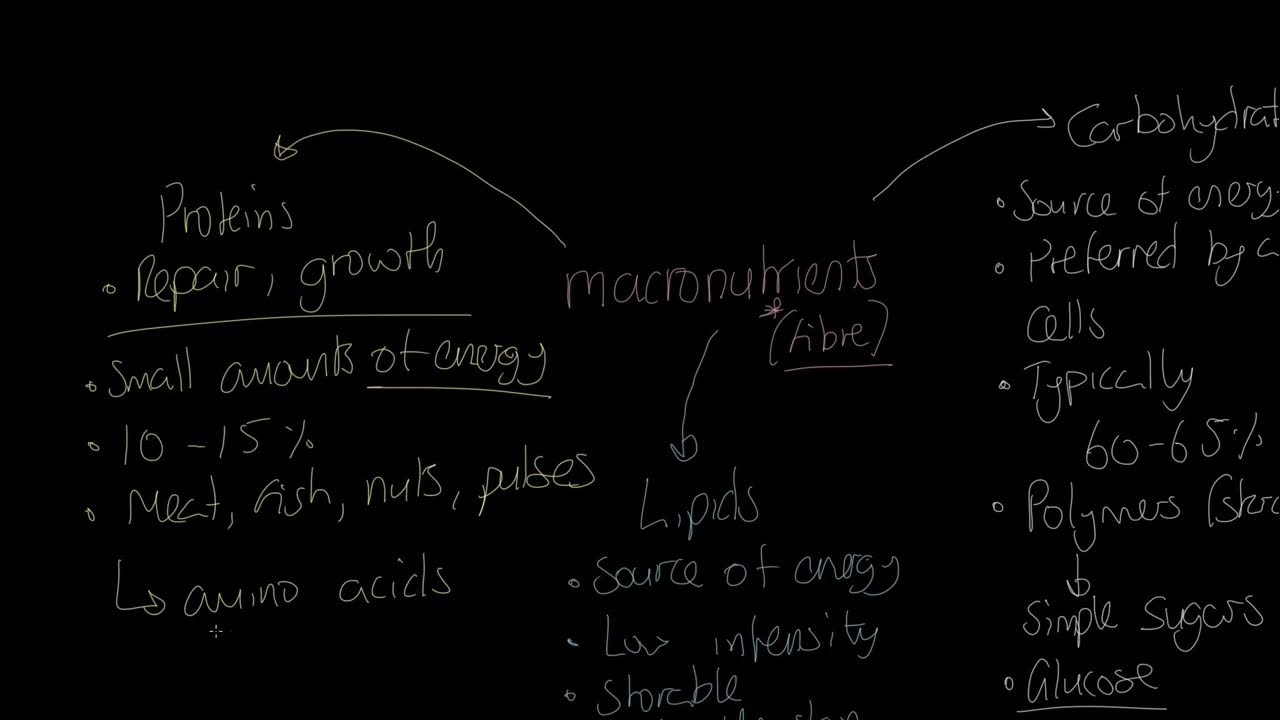 Proteins
• Repair, growth
• Small amounts of energy
• 10 - 15 %
• Meat, fish, nuts, pulses
↳ amino acids
macronutrients
* (fibre)
Lipids
• Source of energy
• Low intensity
• Storable
the
Carbohydrat
• Source of energ
• Preferred by
cells
• Typically
60-65%
• Polymers
↓
Simple sugars
• Glucose